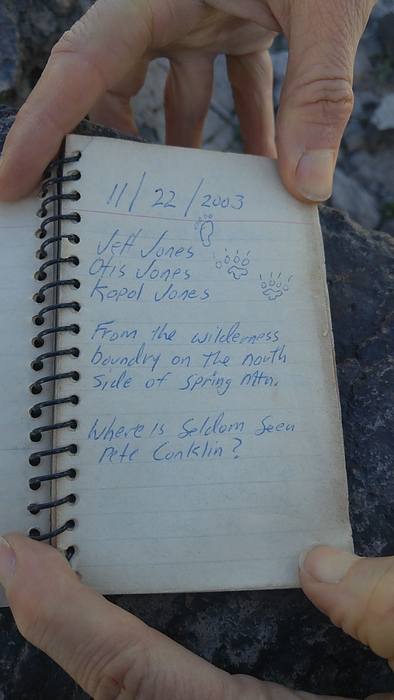 11/22/2003
Jeff Jones
Otis Jones
Kopol Jones
From the wilderness
boundry on the north
side of Spring Mtn.
Where is Seldom Seen
Pete Conklin?